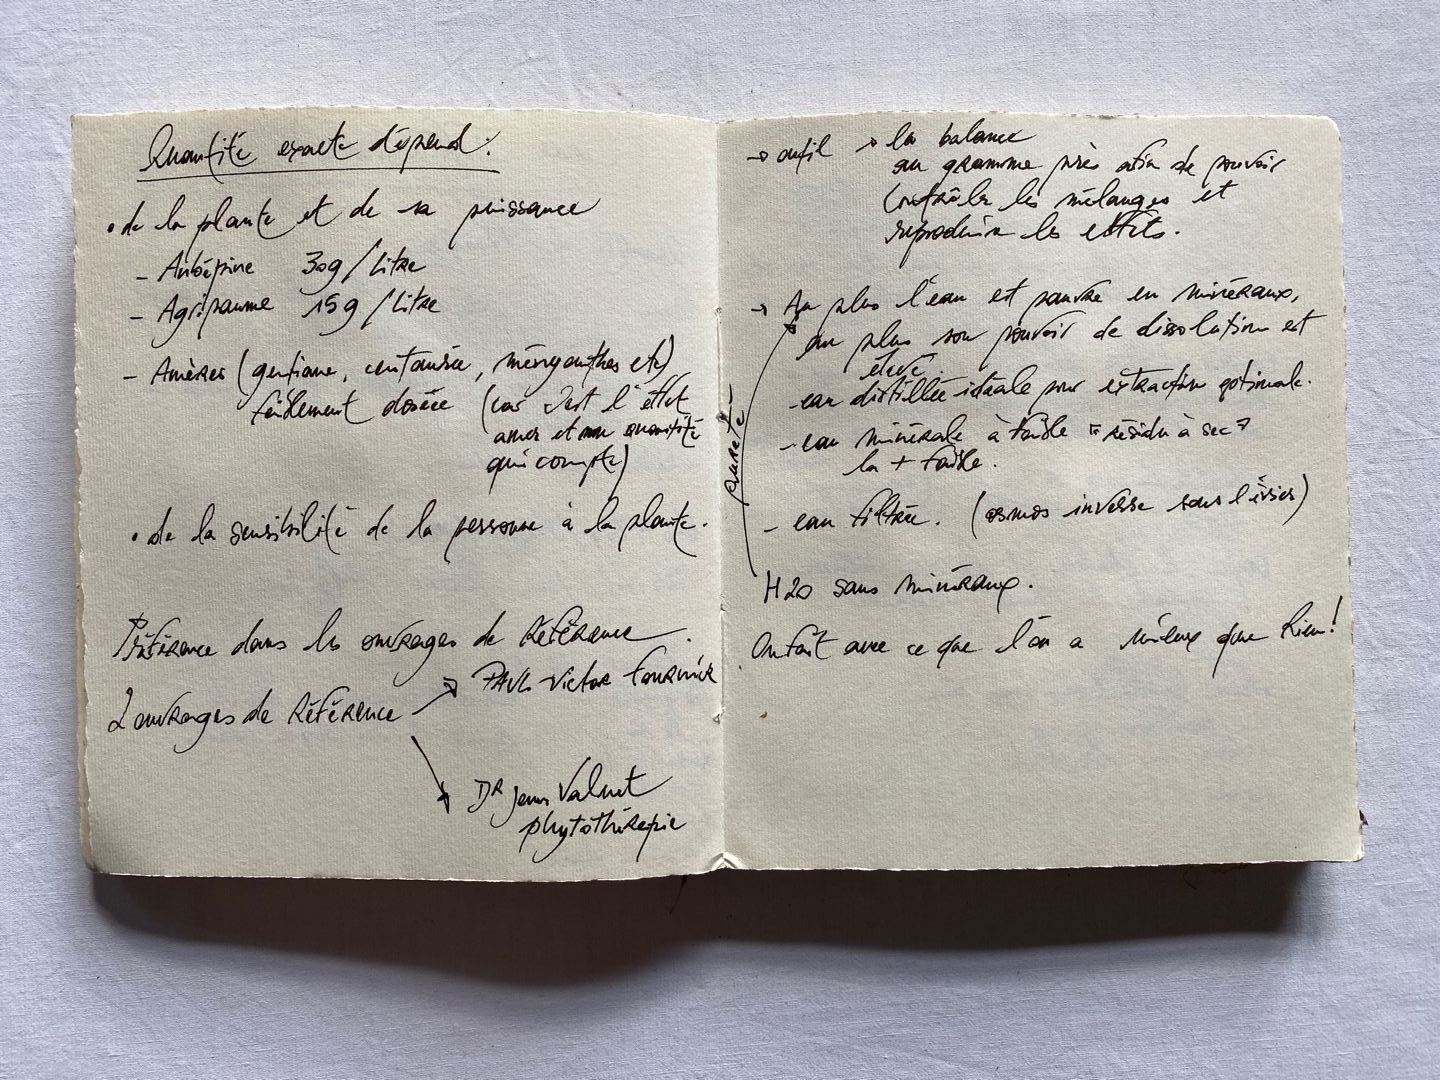 Quantité exacte dépend:
• de la plante et de sa puissance
- Aubépine 30g/litre
- Agripaume 15g/litre
- Amères (gentiane, centaurée, ményanthes etc)
faiblement dosée (car c'est l'effet
amer et non quantité
qui compte)
• de la sensibilité de la personne à la plante.
Référence dans les ouvrages de Référence.
2 ouvrages de Référence
→ PAUL-Victor Fournier
→ DR Jean Valnet
phytothérapie
→ outil → la balance
au gramme près afin de pouvoir
contrôler les mélanges et
reproduire les effets.
→ Au plus l'eau est pauvre en minéraux,
au plus son pouvoir de dissolution est
élevé.
- eau distillée idéale pour extraction optimale.
- eau minérale à faible "résidu à sec"
la + faible.
- eau filtrée. (osmos inverse sous l'évier)
pureté
H2O sans minéraux.
On fait avec ce que l'on a mieux que Rien!